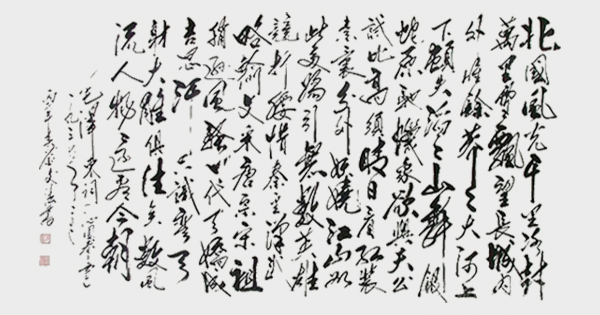 北国风光千里冰封
萬里雪飄望長城内
外惟餘莽々大河上
下頓失滔々山舞銀
蛇原馳蠟象欲與天公
試比高須晴日看红装
素裹分外妖嬈江山如
此多嬌引無數英雄
競折腰惜秦皇漢武
略輸文采唐宗宋祖
稍遜風騷一代天驕成
吉思汗只識彎弓
射大雕俱往矣數風
流人物還看今朝
毛澤東詞沁園春雪
一九三六年二月